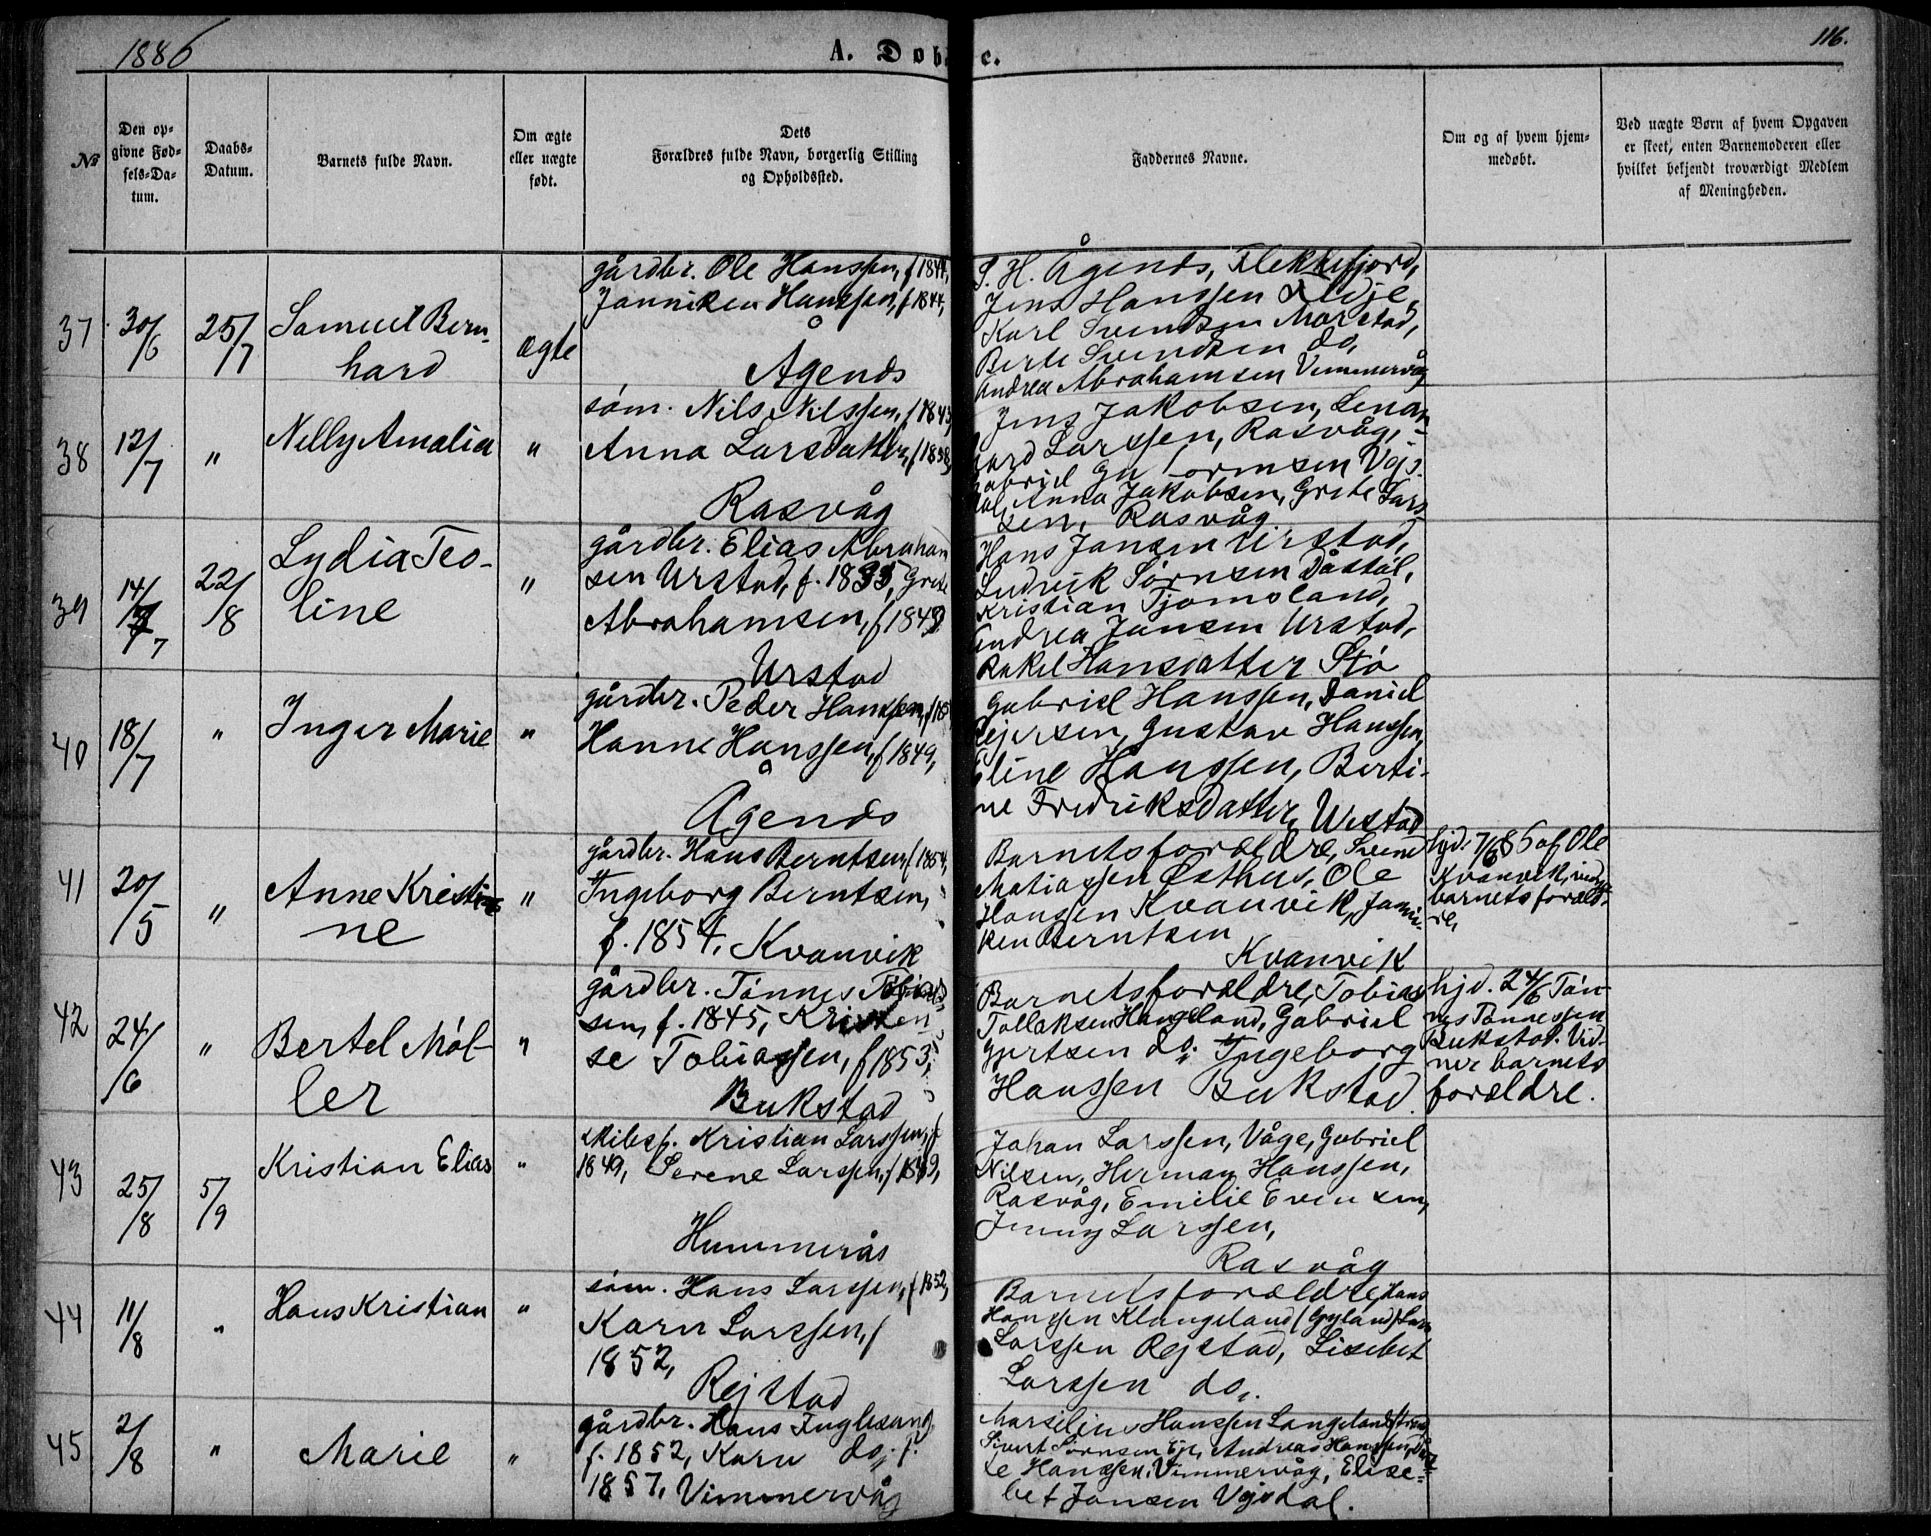 1886
A. Døbte.
116.
No
Den opgivne Fødsels-Datum.
Daabs-Datum.
Barnets fulde Navn.
Om ægte eller uægte født.
Dets Forældres fulde Navn, borgerlig Stilling og Opholdssted.
Faddernes Navne.
Om og af hvem hjemmedøbt.
Ved uægte Børn af hvem Opgaven er skeet, enten Barnemoderen eller hvilket bekjendt troværdigt Medlem af Meningheden.
37
30/6
25/7
Samuel Bern-
hard
ægte
gårdbr. Ole Hanssen, f 1844,
Janniken Hanssen, f 1844,
Ågenæs
S. H. Ågenæs, Flekkefjord,
Jens Hanssen
Karl Svendsen Marstad,
Berte Svendsen do,
Andrea Abrahamsen Vemmervåg
38
12/7
"
Nelly Amalia
"
søm. Nils Nilssen, f 1843,
Anna Larsdatter, f 1858,
Rasvåg
Jens Jakobsen, Lenan
hard Larssen, Rasvåg,
Gabriel
dal, Anna Jakobsen, Grete Lars-
sen, Rasvåg.
39
14/7
22/8
Lydia Teo-
line
"
gårdbr. Elias Abraham
sen Urstad, f. 1835, Grete
Abrahamsen, f 1849
Urstad
Hans Jansen Urstad,
Ludvik Sørnsen Dåstøl,
Kristian Tjomsland,
Andrea Jansen Urstad,
Rakel Hansdatter Stø
40
18/7
"
Inger Marie
"
gårdbr. Peder Hanssen,
Hanne Hanssen, f 1849,
Ågenæs
Gabriel Hanssen, Daniel
Rejersen, Gustav Hanssen,
Eline Hanssen, Berti-
ne Fredriksdatter, Urstad
41
20/5
"
Anne Kristi-
ne
"
gårdbr. Hans Berntsen, f 1854,
Ingeborg Berntsen,
f. 1854, Kvanvik
Barnets forældre, Svend
Matiassen Østhus, Ole
Hansen Kvanvik, Janni-
ken Berntsen
Kvanvik
hjd. 7/6 86 af Ole
Kvanvik, vidner
barnets foræld-
re,
42
24/6
"
Bertel Møl-
ler
"
gårdbr. Tønnes Tobias-
sen, f. 1845, Kristen
se Tobiassen, f 1853,
Bukstad
Barnets forældre, Tobias
Tollaksen Haugeland, Gabriel
Gjertsen do, Ingeborg
Hanssen Bukstad
hjd. 24/6 Tøn-
nes Tønnessen
Bukstad. Vid-
ner barnets
forældre.
43
25/8
5/9
Kristian Elias
"
skibsf. Kristian Larssen, f
1849, Serene Larssen, f 1849,
Hummerås
Johan Larssen, Våge, Gabriel
Nilsen, Herman Hanssen,
Rasvåg, Emilie Evensen,
Jenny Larssen,
Rasvåg
44
11/8
"
Hans Kristian
"
søm. Hans Larssen, f 1852,
Karn Larssen, f
1852,
Rejstad
Barnets forældre, Hans
Hanssen Klungeland (Gyland), Lars
Larssen Rejstad, Lisebet
Larssen do,.
45
2/8
"
Marie
"
gårdbr. Hans Inglesand,
f. 1852, Karn do, f.
1857, Vimmervåg
Marselius Hanssen Langeland,
Sivert Sørnsen Eje, Andreas Hanssen,
te Hanssen, Vimmervåg, Elise-
bet Jansen Vejsdal.